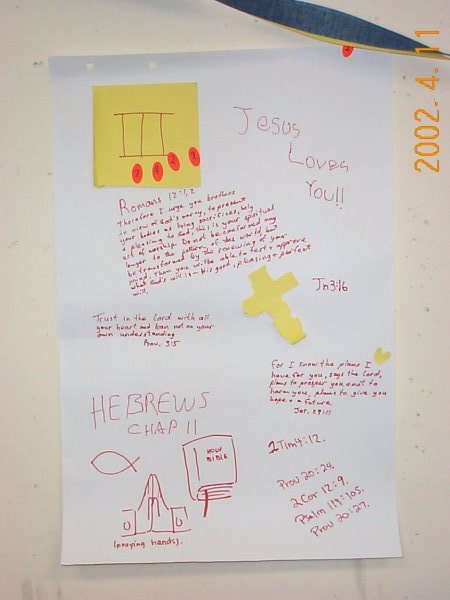 2002. 4. 11
Jesus
Loves
YOU!!
Romans 12:1,2
Therefore I urge you brothers
in view of God's mercy, to present
your bodies as living sacrifices, holy
& pleasing to God, this is your spiritual
act of worship. Do not be conformed any
longer to the pattern of this world, but
be transformed by the renewing of your
mind. Then you will be able to test & approve
what God's will is – His good, pleasing & perfect
will.
Jn 3:16
Trust in the Lord with all
your heart and lean not on your
own understanding
Prov. 3:5
For I know the plans I
have for you, says the Lord,
plans to prosper you & not to
harm you, plans to give you
hope & a future
Jer. 29:11
HEBREWS
CHAP 11
HOLY
BIBLE
(praying hands).
1 Tim 4:12.
Prov 20:24.
2 Cor 12:9.
Psalm 119:105.
Prov 20:27.